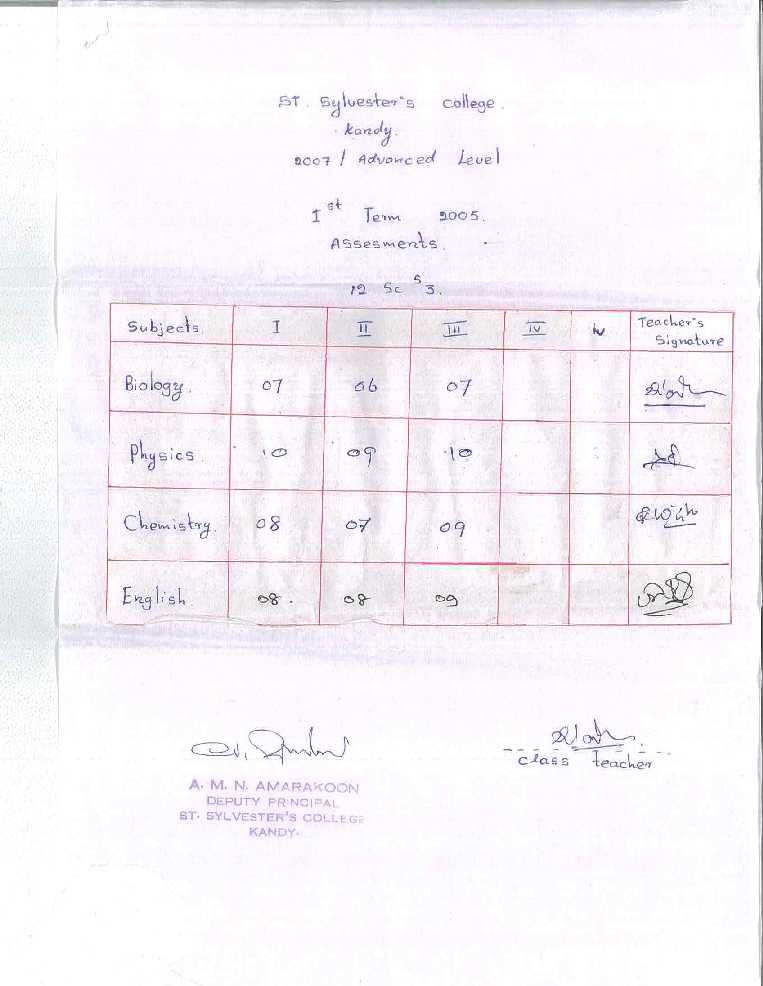 ST. Sylvester's college.
Kandy.
2007 / Advanced Level
Ist Term 2005.
Assesments.
12 Sc s 3.
Subjects I II III IV Teacher's Signature
Biology. 07 06 07
Physics. 10 09 10
Chemistry. 08 07 09
English 08. 08 09
class teacher
A. M. N. AMARAKOON
DEPUTY PRINCIPAL
ST. SYLVESTER'S COLLEGE
KANDY.